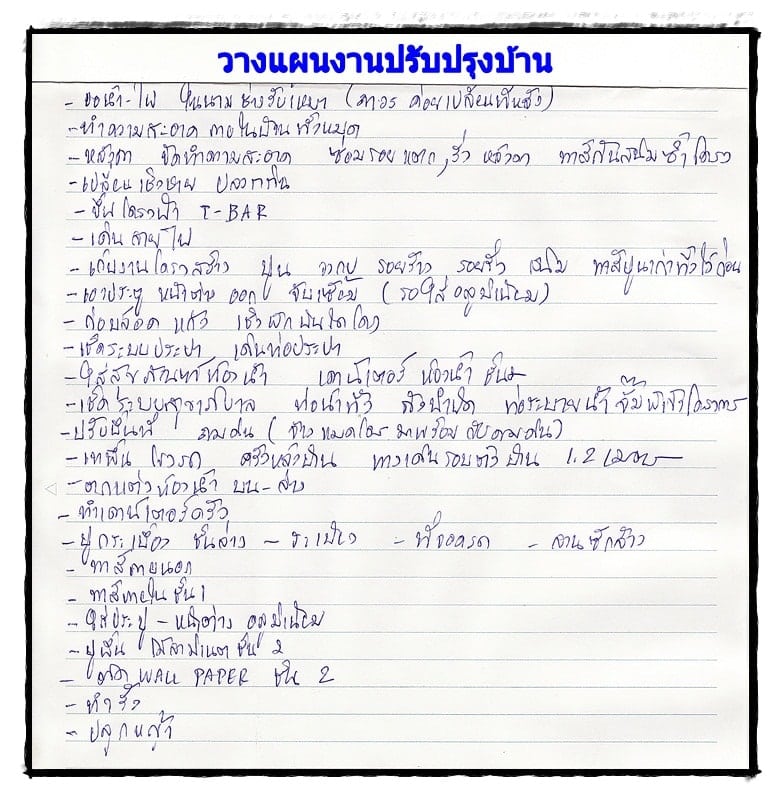 วางแผนงานปรับปรุงบ้าน
- ขอน้ำ-ไฟ ในนามช่างรับเหมา (ถาวร ค่อยเปลี่ยนทีหลัง)
- ทำความสะอาด ภายในบ้านทั้งหมด
- หลังคา ขัดทำความสะอาด ซ่อมรอยแตก, รั่ว หลังคา ทาสีกันสนิมซ้ำโครง
- เปลี่ยนเชิงชาย ปลวกกิน
- ขึ้นโครงฝ้า T-BAR
- เดินสายไฟ
- เก็บงานโครงสร้าง ปูน ฉาบ รอยร้าว รอยรั่ว สนิม ทาสีปูนเก่าทิ้งไว้ก่อน
- เอาประตู หน้าต่าง ออก จับเซี้ยม (รอใส่อลูมิเนียม)
- ก่อบล๊อค หลัง เชิงผนังบันไดโค้ง
- เช็คระบบประปา เดินท่อประปา
- ใส่สุขภัณฑ์ห้องน้ำ เคาน์เตอร์ ห้องน้ำ ชั้น2
- เช็คระบบสุขาภิบาล ท่อน้ำทิ้ง ถังบำบัด ท่อระบายน้ำ เข้าโครงการ
- ปรับพื้นที่ ถมดิน (ช่าง มาพร้อมกับถมดิน)
- เทพื้น โรงรถ ครัวหลังบ้าน ทางเดินรอบตัวบ้าน 1.2 เมตร
- ตกแต่งห้องน้ำ บน-ล่าง
- ทำเคาน์เตอร์ครัว
- ปูกระเบื้อง ชั้นล่าง - ระเบียง - ที่จอดรถ - ลานซักล้าง
- ทาสีภายนอก
- ทาสีภายในชั้น 1
- ใส่ประตู - หน้าต่าง อลูมิเนียม
- ปูพื้น ไม้ลามิเนต ชั้น 2
- ติด WALL PAPER ชั้น 2
- ทำรั้ว
- ปลูกหญ้า